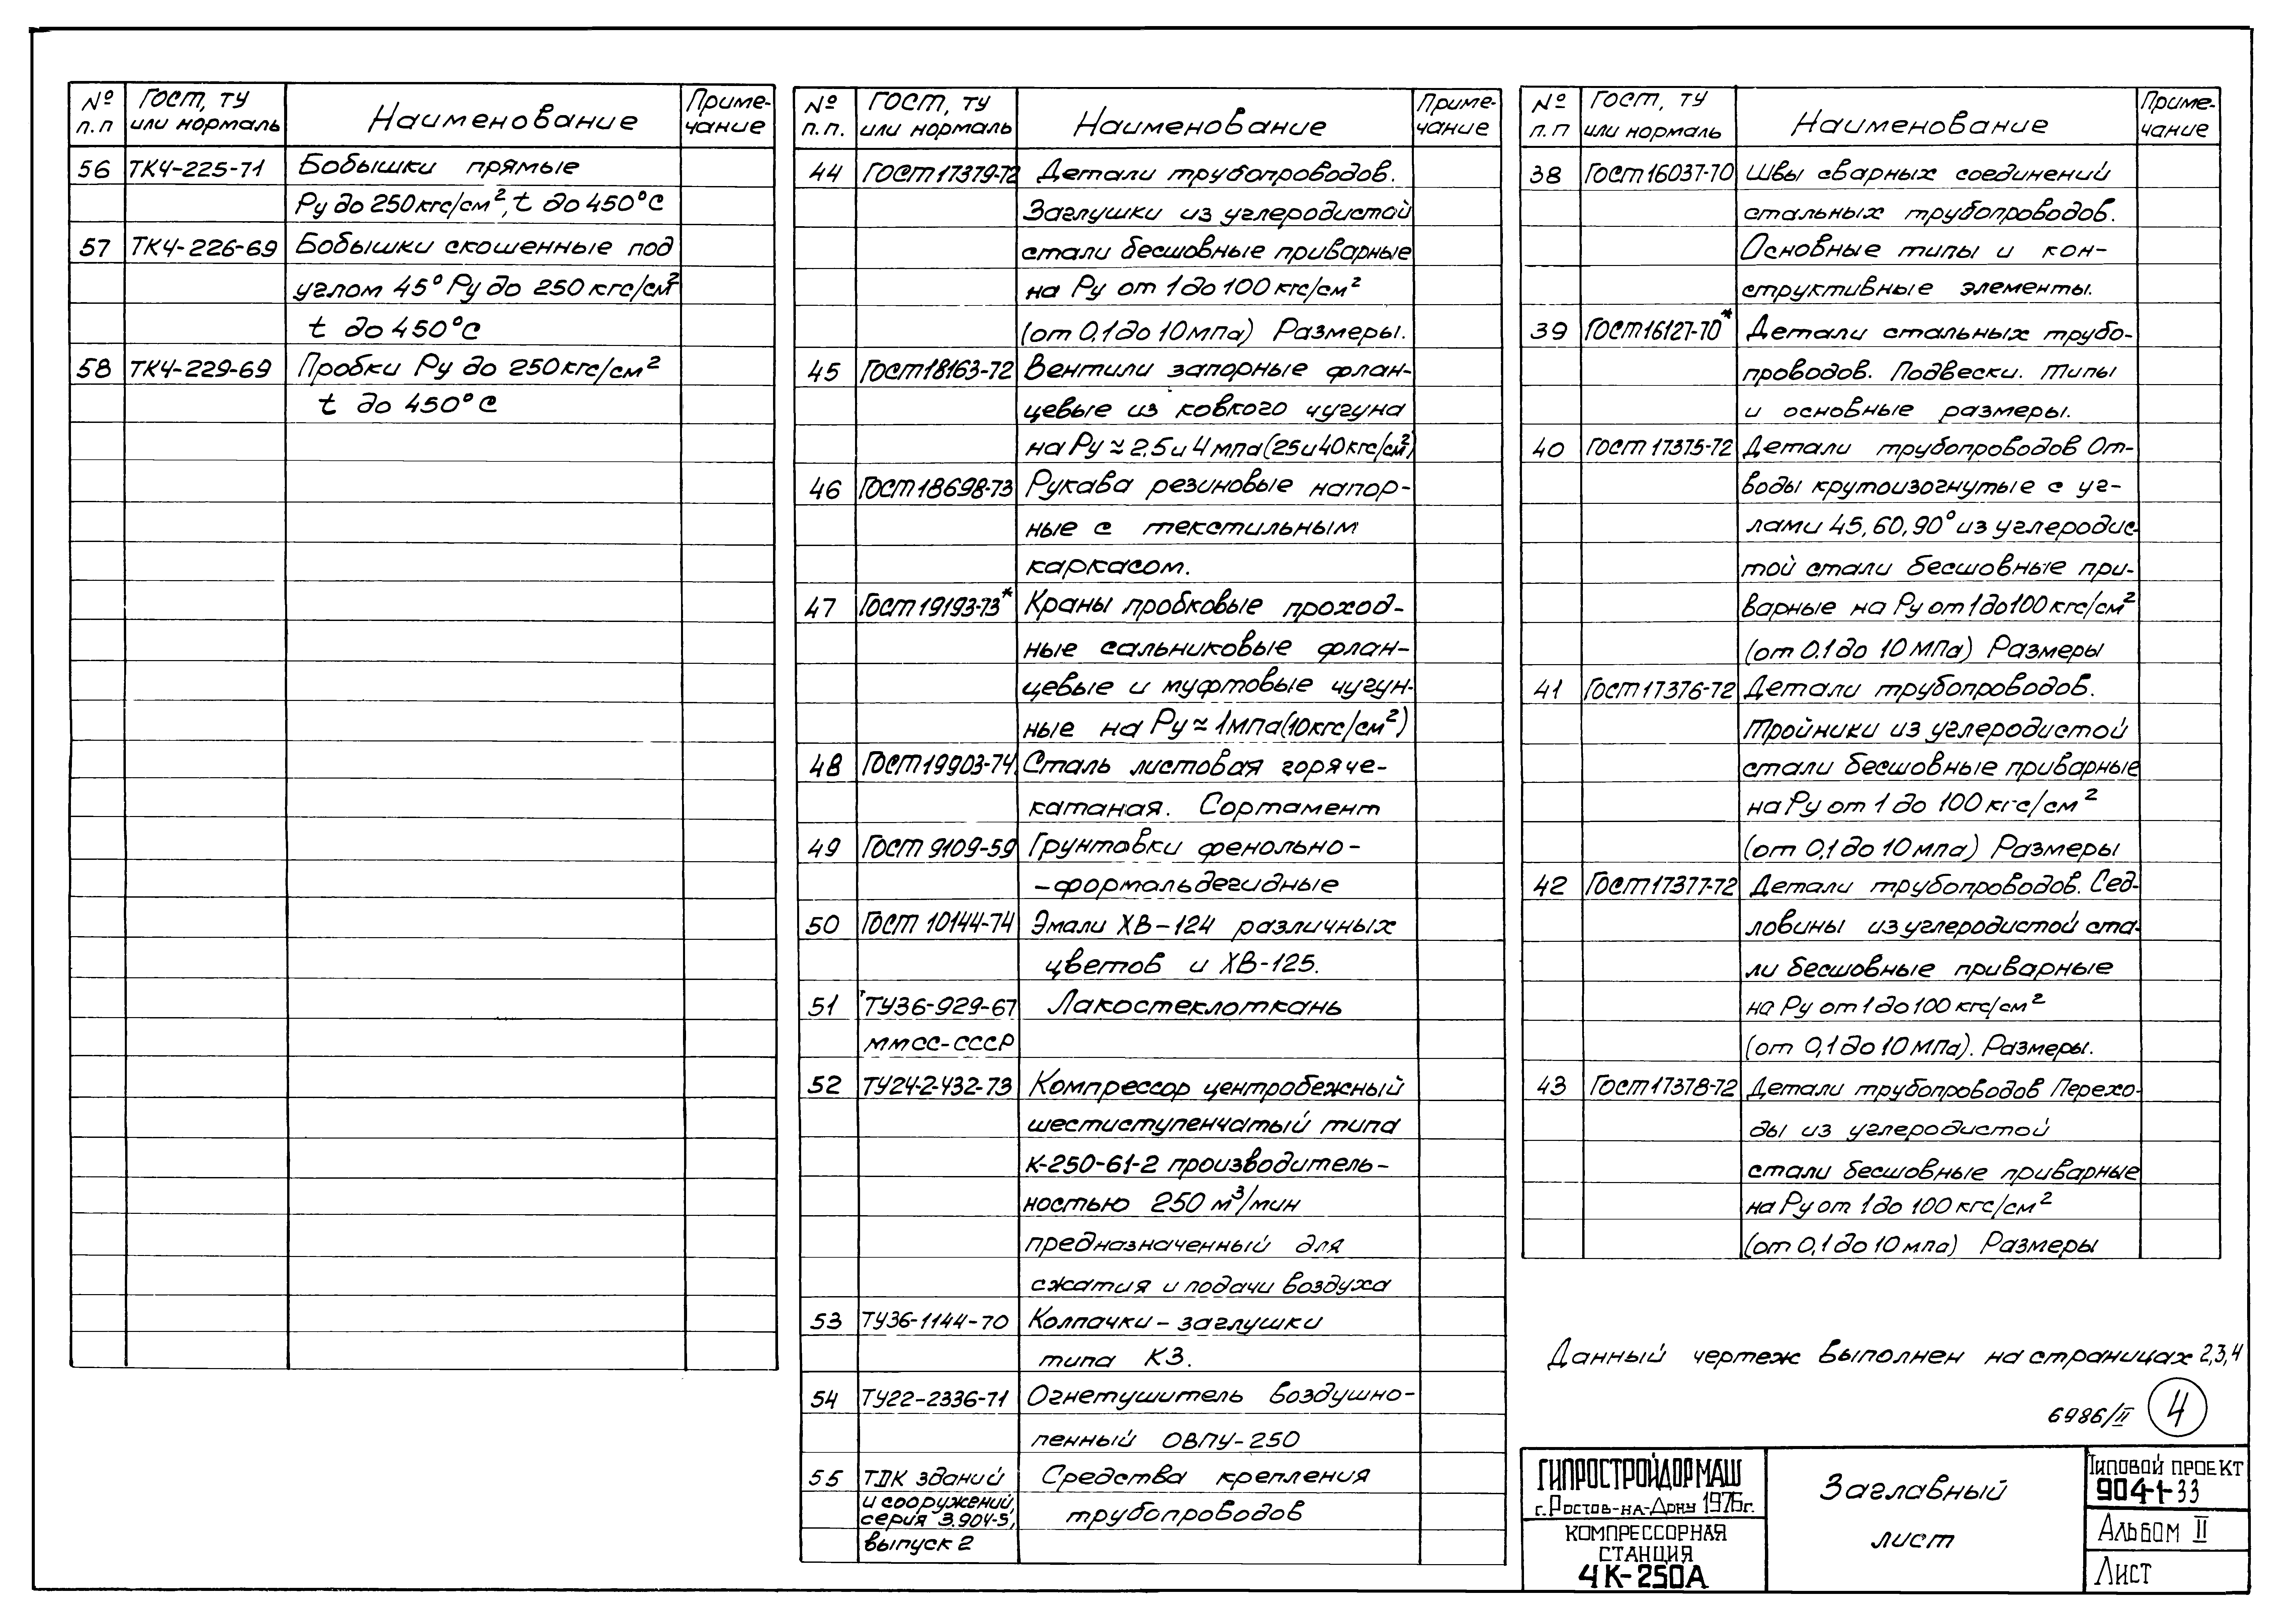 № п.п | ГОСТ, ТУ или нормаль | Наименование | Примечание
56 ТК4-225-71 Бобышки прямые
Ру до 250 кгс/см², t до 450°С
57 ТК4-226-69 Бобышки скошенные под
углом 45° Ру до 250 кгс/см²
t до 450°С
58 ТК4-229-69 Пробки Ру до 250 кгс/см²
t до 450°С
№ п.п. | ГОСТ, ТУ или нормаль | Наименование | Приме-чание
44 ГОСТ 17379-72 Детали трубопроводов.
Заглушки из углеродистой
стали бесшовные приварные
на Ру от 1 до 100 кгс/см²
(от 0,1 до 10 мпа) Размеры.
45 ГОСТ 18163-72 Вентили запорные флан-
цевые из ковкого чугуна
на Ру ≈ 2.5 и 4 мпа (25 и 40 кгс/см²)
46 ГОСТ 18698-73 Рукава резиновые напор-
ные с текстильным
каркасом.
47 ГОСТ 19193-73* Краны пробковые проход-
ные сальниковые флан-
цевые и муфтовые чугун-
ные на Ру ≈ 1 мпа (10 кгс/см²)
48 ГОСТ 19903-74. Сталь листовая горяче-
катаная. Сортамент
49 ГОСТ 9109-59 Грунтовки фенольно-
-формальдегидные
50 ГОСТ 10144-74 Эмали ХВ-124 различных
цветов и ХВ-125.
51 ТУ36-929-67 Лакостеклоткань
ММСС-СССР
52 ТУ24-2-432-73 Компрессор центробежный
шестиступенчатый типа
К-250-61-2 производитель-
ностью 250 м³/мин
предназначенный для
сжатия и подачи воздуха
53 ТУ36-1144-70 Колпачки-заглушки
типа КЗ.
54 ТУ22-2336-71 Огнетушитель воздушно-
пенный ОВПУ-250
55 ТДК зданий Средства крепления
и сооружений,
серия 3.904-5, трубопроводов
выпуск 2
№ п.п | ГОСТ, ТУ или нормаль | Наименование | Приме-чание
38 ГОСТ 16037-70 Швы сварных соединений
стальных трубопроводов.
Основные типы и кон-
структивные элементы.
39 ГОСТ 16127-70* Детали стальных трубо-
проводов. Подвески. Типы
и основные размеры.
40 ГОСТ 17375-72 Детали трубопроводов От-
воды крутоизогнутые с уг-
лами 45, 60, 90° из углеродис-
той стали бесшовные при-
варные на Ру от 1 до 100 кгс/см²
(от 0.1 до 10 МПа) Размеры
41 ГОСТ 17376-72 Детали трубопроводов.
Тройники из углеродистой
стали бесшовные приварные
на Ру от 1 до 100 кгс/см²
(от 0,1 до 10 мпа) Размеры
42 ГОСТ 17377-72 Детали трубопроводов. Сед-
ловины из углеродистой ста-
ли бесшовные приварные
на Ру от 1 до 100 кгс/см²
(от 0,1 до 10 МПа). Размеры.
43 ГОСТ 17378-72 Детали трубопроводов Перехо-
ды из углеродистой
стали бесшовные приварные
на Ру от 1 до 100 кгс/см²
(от 0,1 до 10 мпа) Размеры
Данный чертеж выполнен на страницах 2,3,4
6986/II 4
ГИПРОСТРОЙДОРМАШ
г. Ростов-на-Дону 1976г.
КОМПРЕССОРНАЯ
СТАНЦИЯ
4К-250А
Заглавный
лист
Типовой проект
904-1-33
Альбом II
Лист